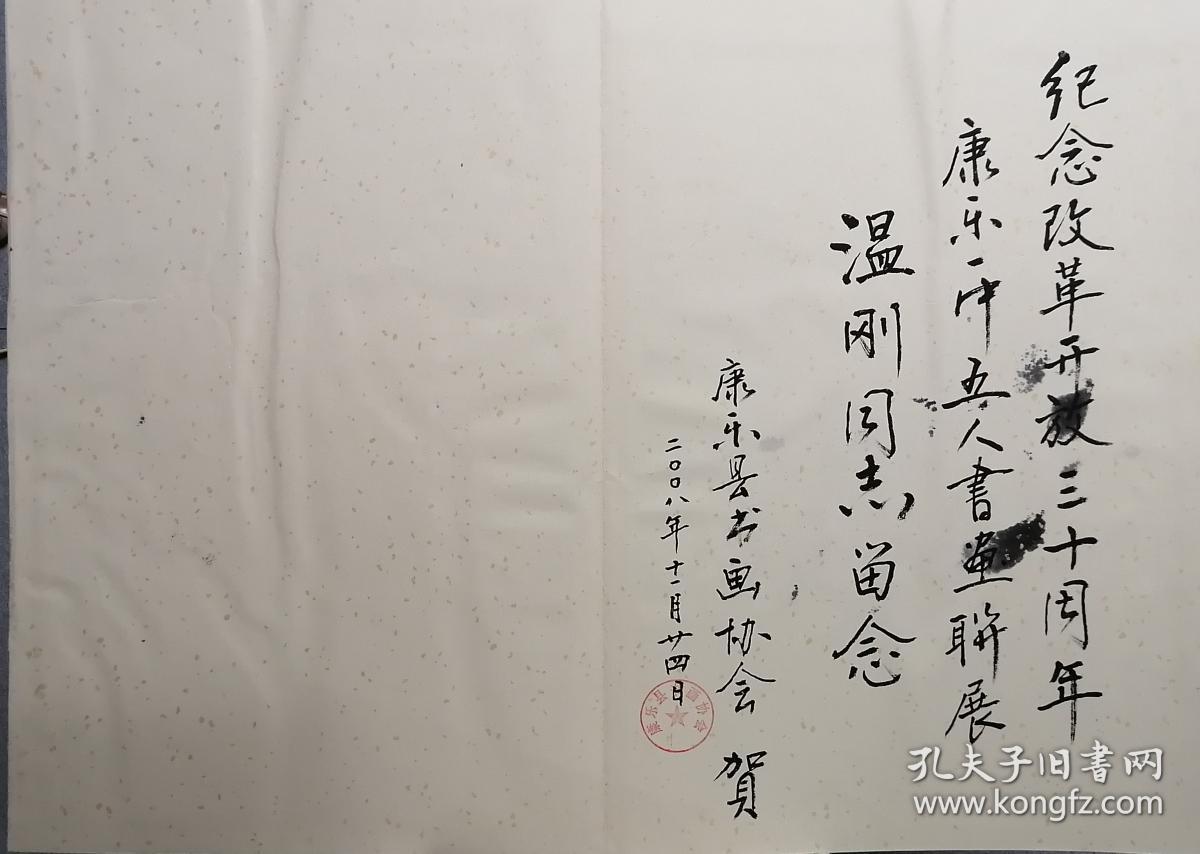 纪念改革开放三十周年
康乐一中五人書畫聯展
温刚同志留念
康乐县书画协会 賀
二〇〇八年十一月廿四日
康乐县 画协会
孔夫子旧书网
www.kongfz.com